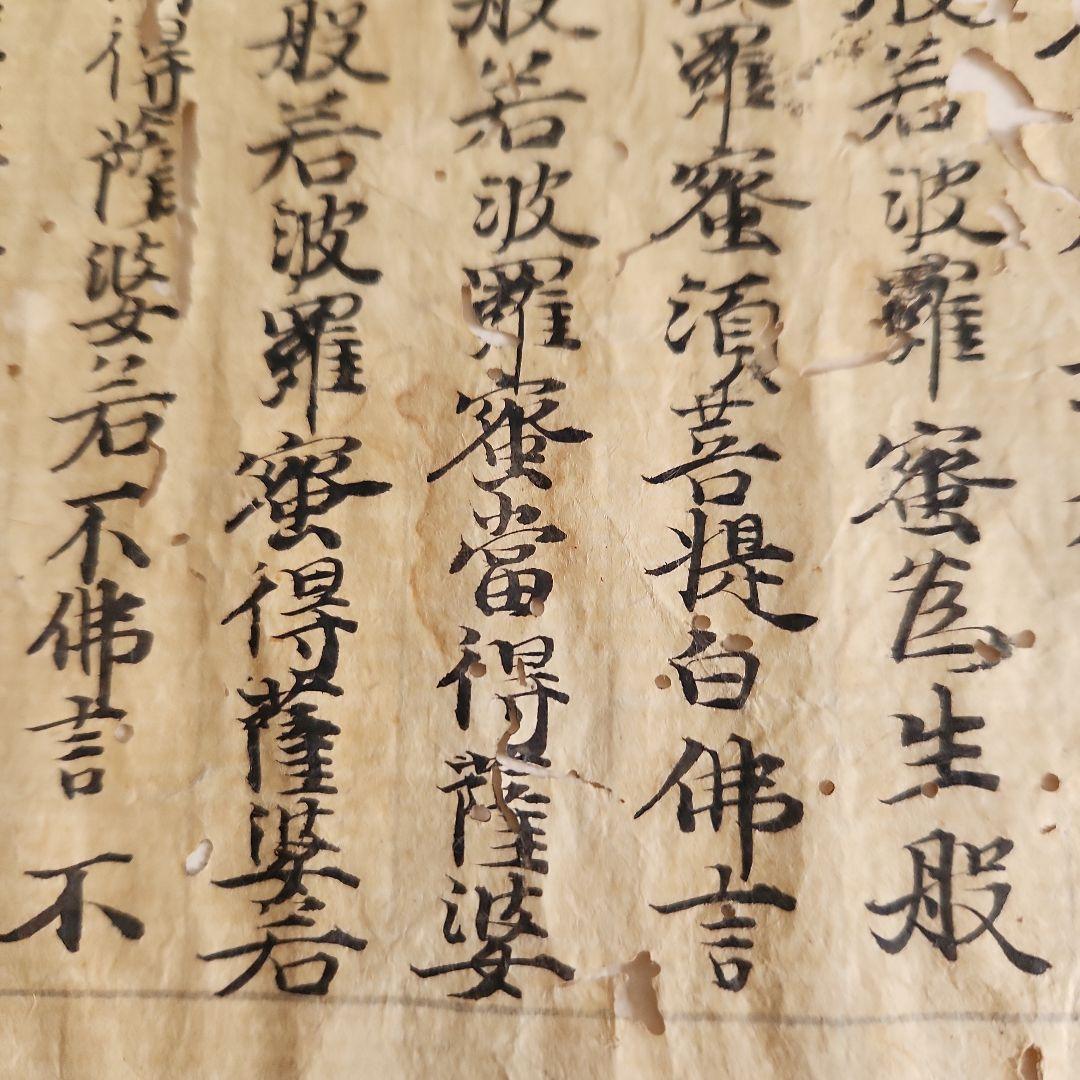 般若波羅蜜為生般
波羅蜜須菩提白佛言
般若波羅蜜當得薩婆
般若波羅蜜得薩婆若
得薩婆若不佛言不